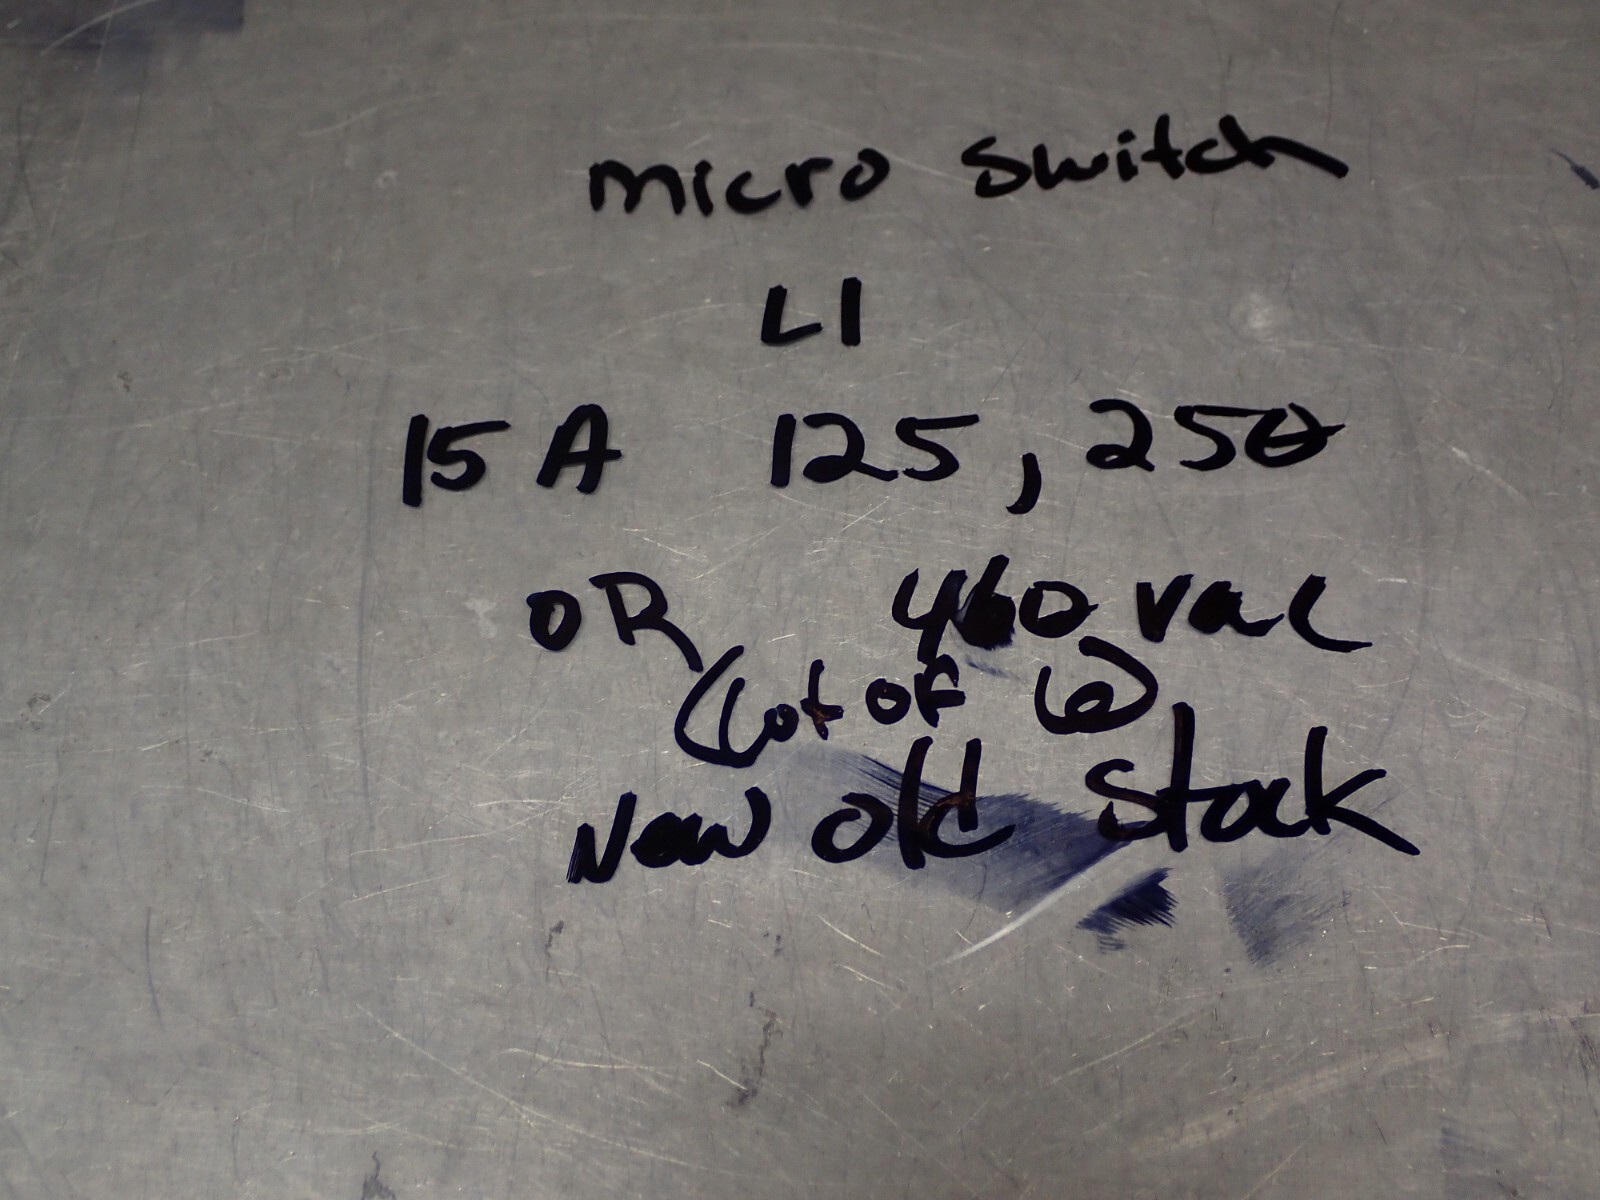 micro switch
L1
15 A 125, 250
OR 460 vac
(Lot of 6)
New old Stock